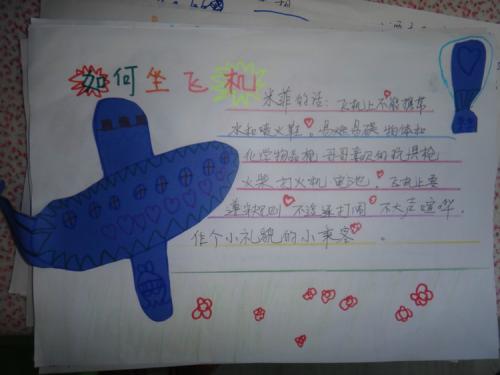 如何坐飞机
米菲的话：飞机上不能携带
水和喷火鞋，易燃易爆物体和
化学物品枪哥哥喜欢的玩具枪
火柴打火机电池，飞机上要
遵守规则不追逐打闹不大声喧哗，
作个小礼貌的小乘客。